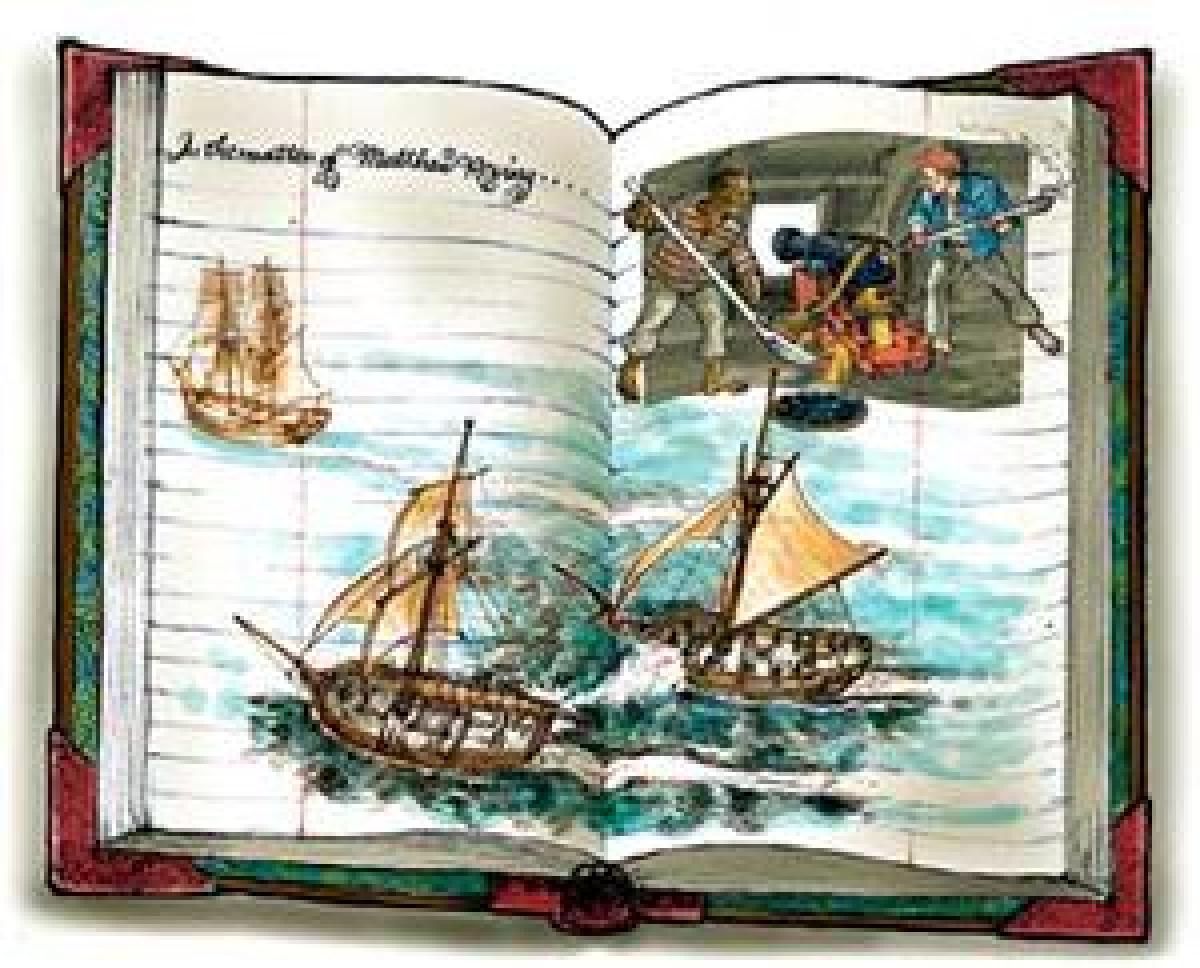 In the matter of Matthew